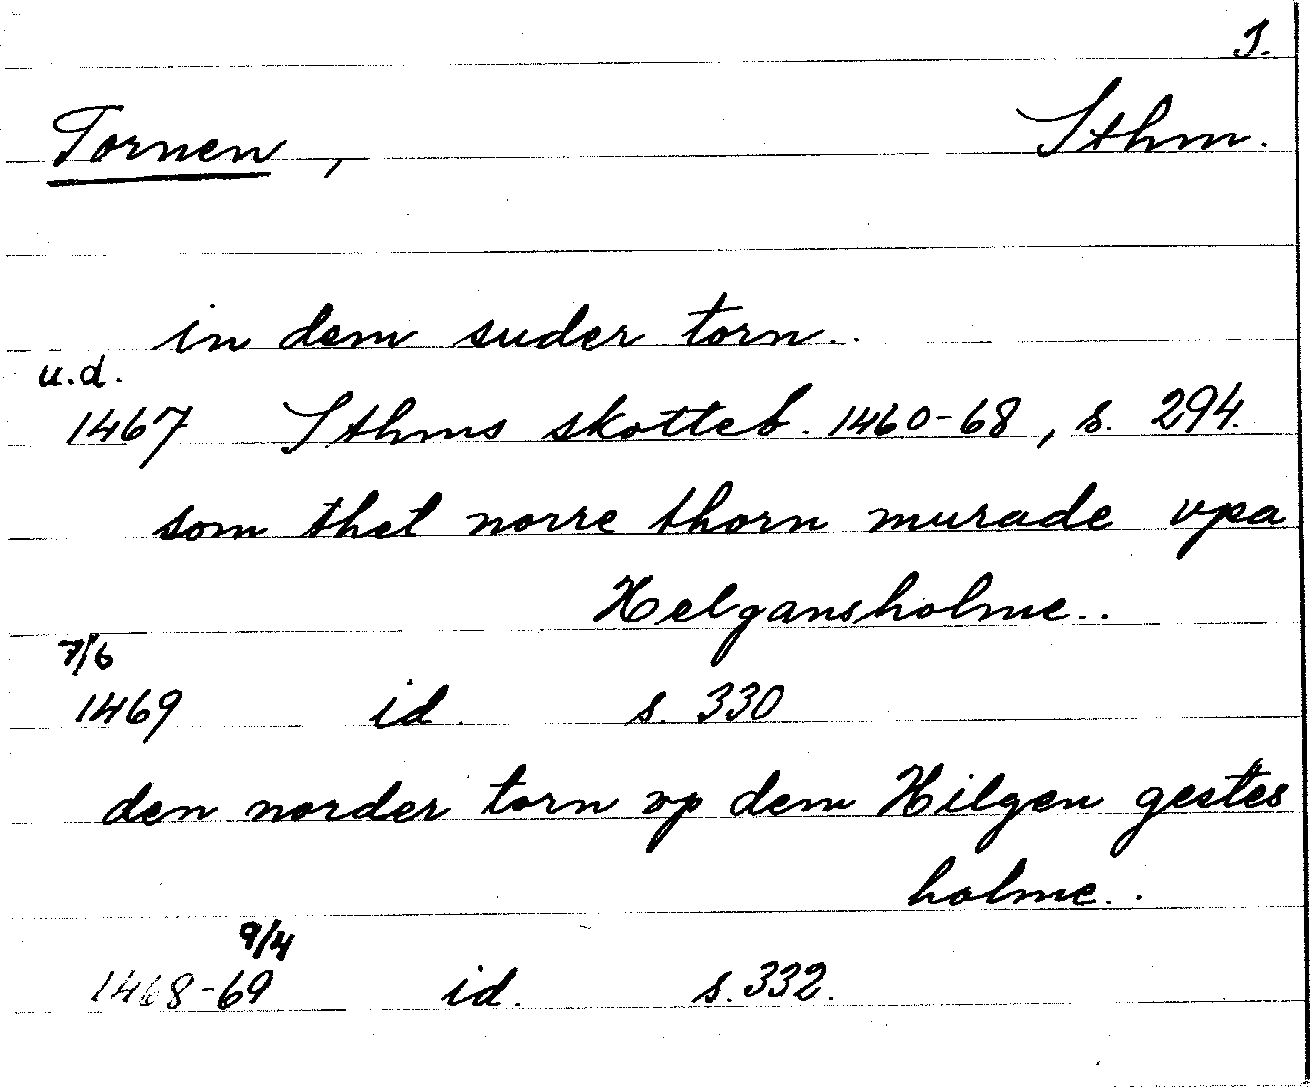 1.
Tornen, Sthm.
in dem suder torn..
u.d.
1467 Sthms skotteb. 1460-68, s. 294.
som thet norre thorn murade vpa
Helgansholme..
7/6
1469 id. s. 330
den norder torn vp dem Hilgen gestes
holme..
9/4
1468-69 id. s. 332.